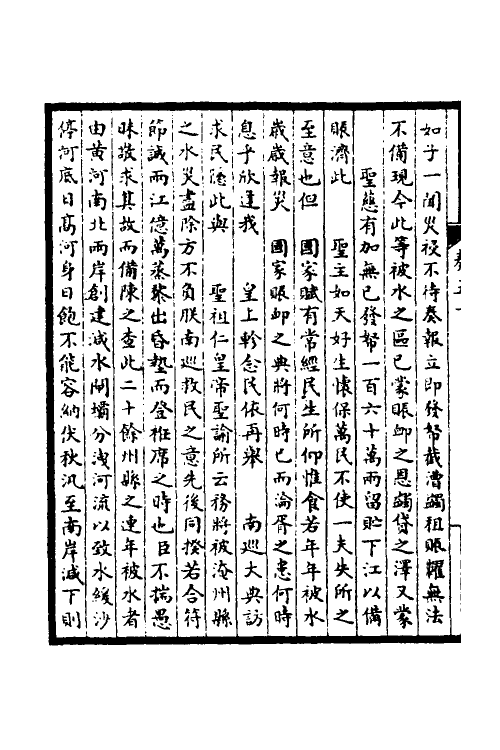 如子一聞災祲不待奏報立即發帑截漕蠲租賑糶無法
不備現今此等被水之區已蒙賑卹之恩蠲貸之澤又蒙
聖慈有加無已發帑一百六十萬兩留貯下江以備
賑濟此　聖主如天好生懷保萬民不使一夫失所之
至意也但　國家賦有常經民生所仰惟食若年年被水
歲歲報災　國家賑卹之典將何時已而淪胥之患何時
息乎欣逢我　皇上軫念民依再舉　南巡大典訪
求民隱此與　聖祖仁皇帝聖諭所云務將被淹州縣
之水災盡除方不負朕南巡救民之意先後同揆若合符
節誠兩江億萬蒸黎出昏墊而登袵席之時也臣不揣愚
昧敬求其故而備陳之查此二十餘州縣之連年被水者
由黃河南北兩岸創建減水閘壩分洩河流以致水緩沙
停河底日高河身日飽不能容納伏秋汛至南岸減下則